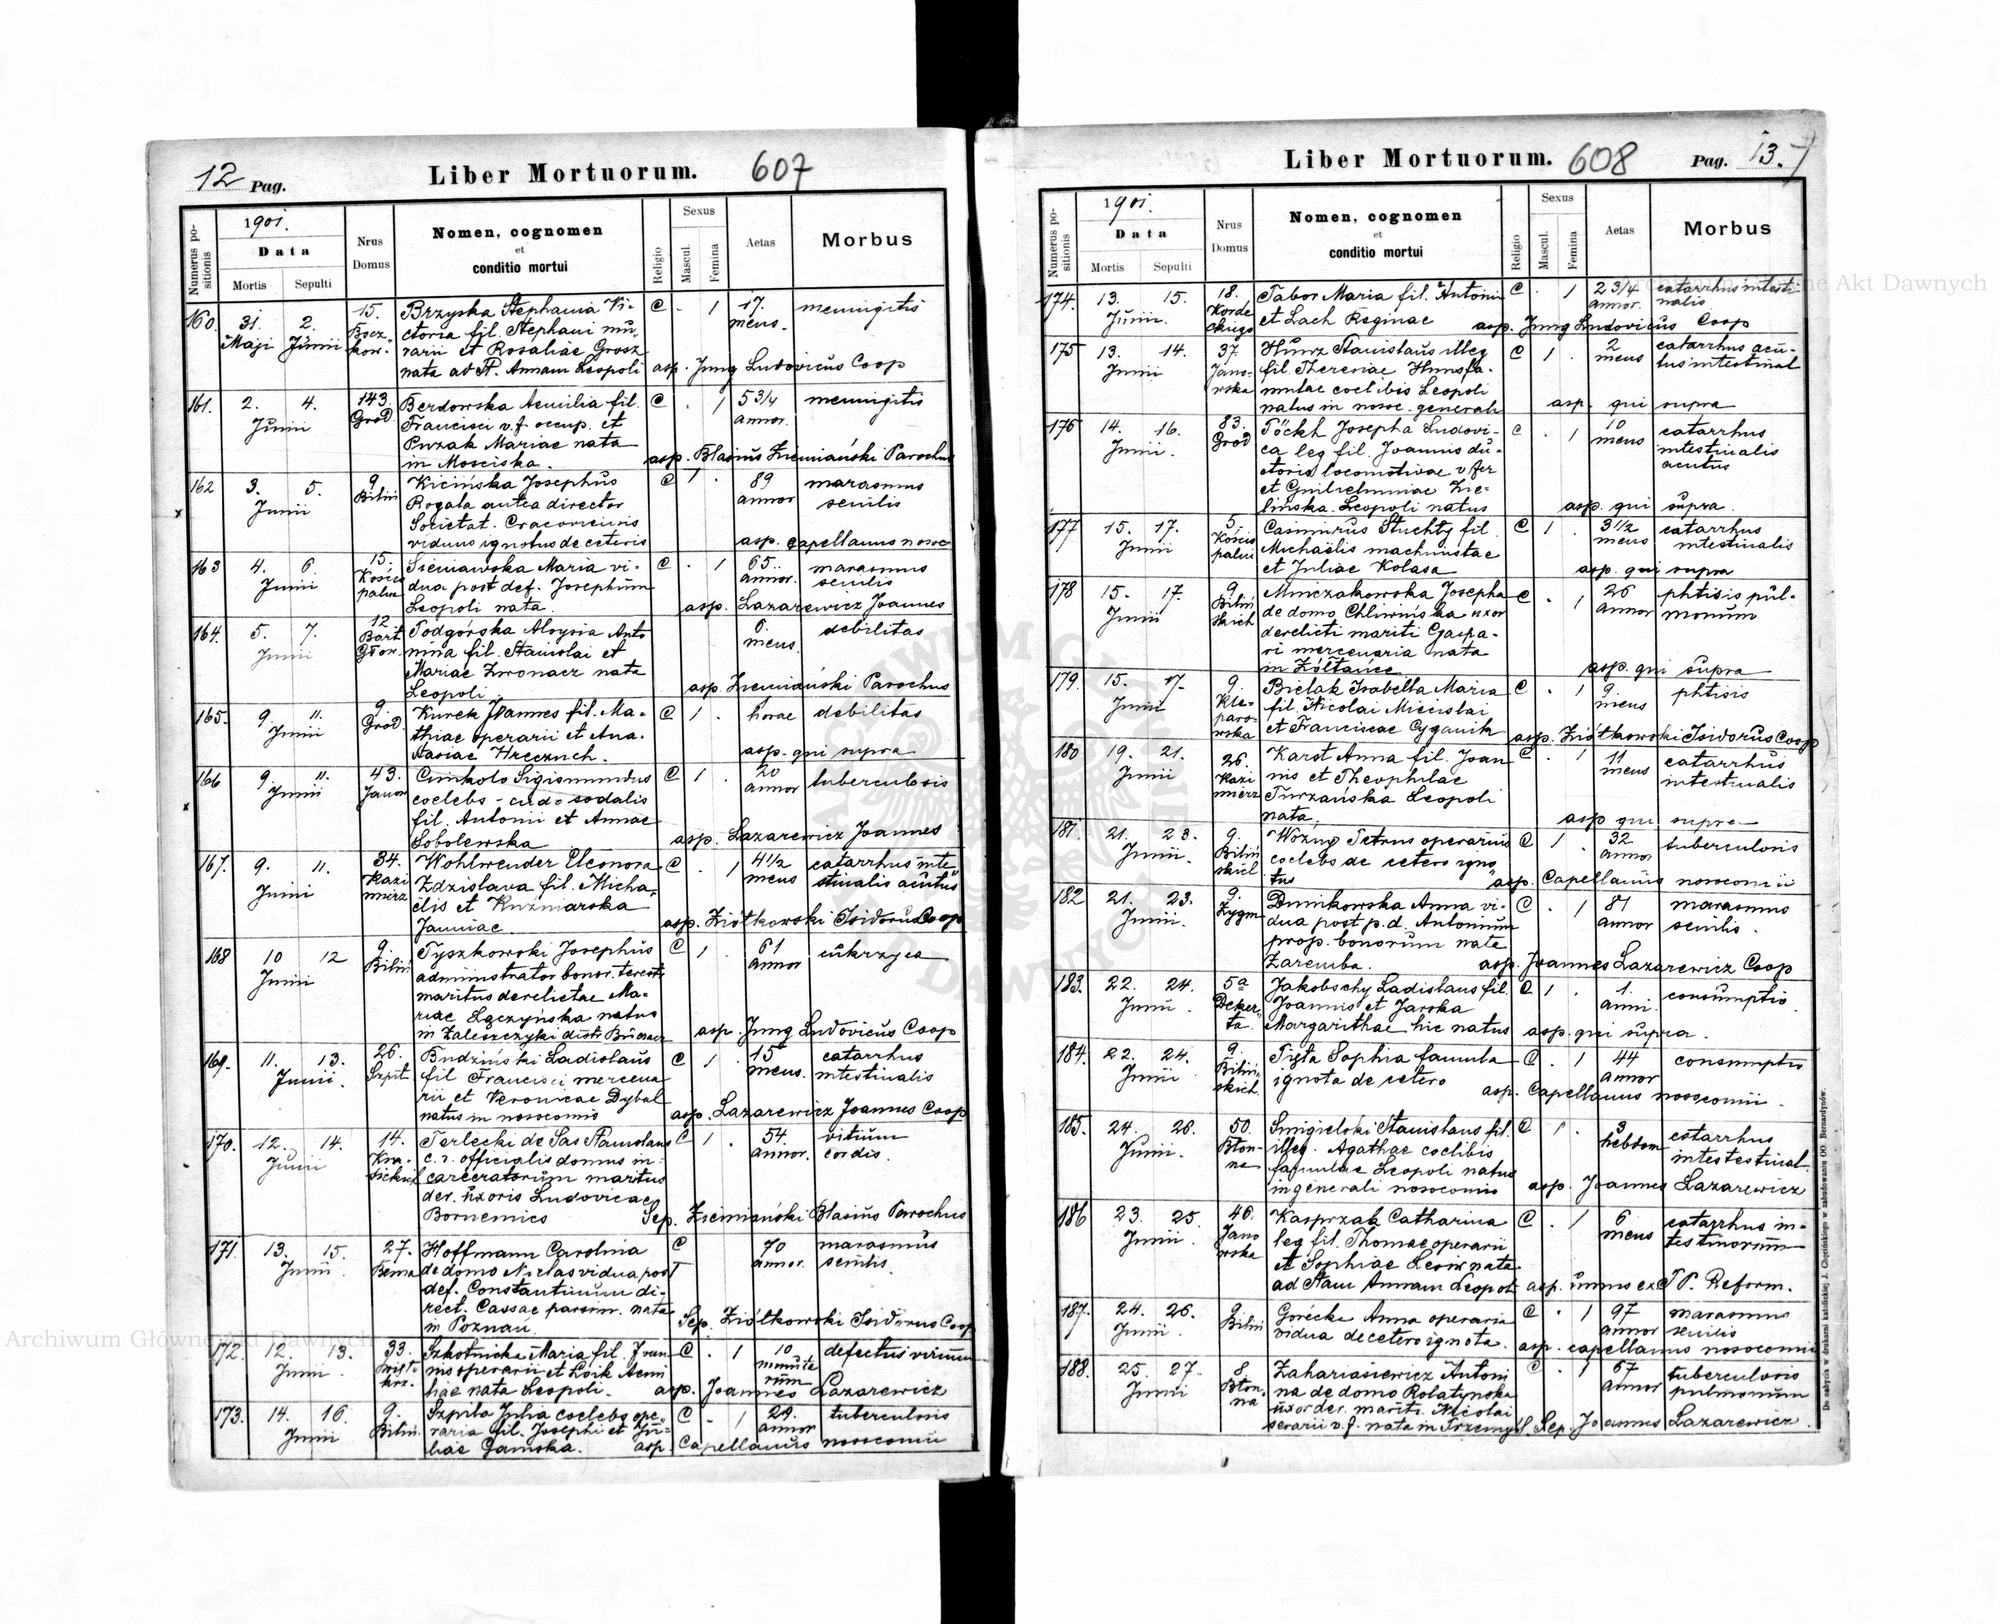 12 Pag. Liber Mortuorum. 607
Numerus positionis
1901.
Data
Mortis Sepulti
Nrus Domus
Nomen, cognomen
et
conditio mortui
Religio
Sexus
Mascul. Femina
Aetas
Morbus
160. 31. 2. 15. Brzyska Stephania Vi- C . 1 17. meningitis
Maji Junii ctoria fil. Stephani mu- mens.
rarii et Rosaliae Grosz
nata ad St. Annam Leopoli asp. Jung Ludovicus Coop
161. 2. 4. 143. Berdowska Aemilia fil. C . 1 5 3/4 meningitis
Junii Grod. Francisci v.f. occup. et annor.
Puzak Mariae nata
in Mosciska. asp. Blasius Ziemiański Parochus
162 3. 5. 9 Kicińska Josephus C 1 . 89 marasmus
Junii Biliń Rogala antea director annor senilis
Societat. Cracoviensis
viduus ignotus de ceteris asp. Capellanus nosoc
163 4. 6. 15. Sieniawska Maria vi- C . 1 65. marasmus
Junii Kościo dua post def. Josephum annor. senilis
palna Leopoli nata. asp. Lazarewicz Joannes
164. 5. 7. 12 Podgórska Aloysia Anto 6. debilitas
Junii Bart. nina fil. Stanislai et mens.
Głow. Mariae Zwonacz nata
Leopoli asp. Ziemiański Parochus
165. 9. 11. 9. Kurek Joannes fil. Ma- C 1 . horae debilitas
Junii Grod. thiae operarii et Ana-
stasiae Hreczuch. asp. qui supra
166 9. 11. 43. Cimkoto Sigismundus C 1 . 20 tuberculosis
Junii Janow coelebs - cudo sodalis annor
fil. Antonii et Annae
Sobolewska asp. Lazarewicz Joannes
167. 9. 11. 34. Wohlwender Eleonora C . 1 4 1/2 catarrhus inte
Junii Kazi Zdzislava fil. Micha- mens stinalis acutus
mirz elis et Kuźniarska
Janniae. asp. Ziółkowski Isidorus Coop
168 10 12 9. Tyszkowski Josephus C 1 . 61 cukrzyca
Junii Biliń administrator bonor. terest annor
maritus derelictae Ma-
riae Łączyńska natus
in Zaleszczyki distr. asp. Jung Ludovicus Coop
169. 11. 13. 26. Budziński Ladislaus C 1 . 15 catarrhus
Junii. Szpit. fil Francisci mercena mens. intestinalis
rii et Veronicae Dybal
natus in nosocomio asp. Lazarewicz Joannes Coop
170. 12. 14. 14. Terlecki de Sas Stanislaus C 1 . 54. vitium
Junii Kra- c. r. officialis domus in- annor. cordis.
sickich carceratorum maritus
der. uxoris Ludovicae
Bornemics Sep. Ziemiański Blasius Parochus
171. 13. 15. 27. Hoffmann Carolina C 70 marasmus
Junii. Bema de domo Nirlas vidua post annor. senilis.
def. Constantinum di-
rect. Cassae parsim. nata
in Poznań. Sep. Ziółkowski Isidorus Coop
172. 12. 13. 33. Szkotnicka Maria fil. Joan C . 1 10 defectus virium
Junii. nis operarii et Loik Aemi minuta
liae nata Leopoli. rum
asp. Joannes Lazarewicz
173. 14. 16. 9. Szpila Julia coelebs ope- C . 1 29. tuberculosis
Junii Biliń. raria fil. Josephi et Ju- annor
liae Gamska. asp. Capellanus nosocomii
Liber Mortuorum. 608 Pag. 13. 7
Numerus positionis
1901.
Data
Mortis Sepulti
Nrus Domus
Nomen, cognomen
et
conditio mortui
Religio
Sexus
Mascul. Femina
Aetas
Morbus
174. 13. 15. 18. Tabor Maria fil. Antonii C . 1 2 3/4 catarrhus intesti
Junii. Korde et Lach Reginae annor. nalis
ckiego asp. Jung Ludovicus Coop
175 13. 14. 37. Hunz Stanislaus illeg C 1 . 2 catarrhus acu-
Junii Jano- fil. Theresiae Hunz fa- mens tus intestinal
wska mulae coelibis Leopoli
natus in nosoc. generali asp. qui supra
176 14. 16. 83. Pöckh Josepha Ludovi- C . 1 10 catarrhus
Junii. Grod ca leg fil. Joannis du- mens intestinalis
ctoris locomotivae v. fer acutus
et Guilelminae Zie-
lińska. Leopoli natus asp. qui supra.
177 15. 17. 5. Casimirus Stuchty fil. C 1 . 3 1/2 catarrhus
Junii Kościo Michaëlis machinistae mens intestinalis
palni et Juliae Kolasa asp. qui supra
178 15. 17. 9. Minczakowska Josepha C . 1 26 phtisis pul-
Junii Biliń de domo Chliwińska uxor annor monum
skich derelicti mariti Gaspa-
ri mercenaria nata
in Żółtańce asp. qui supra
179. 15. 17. 9. Bielak Isabella Maria C . 1 9. phtisis
Junii Kle- fil. Nicolai Miecislai mens
paro- et Franciscae Cyganik
wska asp. Ziółkowski Isidorus Coop
180 19. 21. 26. Karst Anna fil. Joan C . 1 11 catarrhus
Junii Kazi nis et Theophilae mens intestinalis
mierz Turzańska Leopoli
nata. asp qui supra
181. 21. 23. 9. Woźny Petrus operarius C 1 . 32 tuberculosis
Junii. Biliń coelebs de cetero igno annor
skich tus asp. Capellanus nosocomii
182 21. 23. 9. Dunikowska Anna vi- C . 1 81 marasmus
Junii. Zygm dua post p.d. Antonium annor senilis.
prop. bonorum nata
Zaremba. asp. Joannes Lazarewicz Coop
183. 22. 24. 5a Jakobschy Ladislaus fil. C 1 . 1. consumptio
Junii. Deker- Joannis et Jarska anni.
ta. Margarithae hic natus asp. qui supra.
184. 22. 24. 9. Pięta Sophia famula C . 1 44 consumptio
Junii. Biliń- ignota de cetero annor
skich asp. Capellanus nosocomii.
185. 24. 26. 50. Smigielski Stanislaus fil. C 1 . 3 catarrhus
Junii. Błon- illeg. Agathae coelibis hebdom intestestinal
na famulae Leopoli natus
in generali nosocomio asp. Joannes Lazarewicz
186 23. 25. 46. Kasprzak Catharina C . 1 6 catarrhus in-
Junii. Jano leg fil. Thomae operarii mens testinorum
wska et Sophiae Lewin nata
ad Stam Annam Leopoli asp. unus ex P.P. Reform.
187. 24. 26. 9. Gorecka Anna operaria C . 1 97 marasmus
Junii. Biliń vidua de cetero ignota. annor senilis
asp. capellanus nosocomii
188. 25. 27. 8. Zahariasiewicz Antoni C . 1 67 tuberculosis
Junii Błon- na de domo Rolatynska annor pulmonum
na uxor der. marit. Nicolai
serarii v.f. nata in Przemyśl. Sep. Joannes Lazarewicz.
Do nabycia w drukarni katolickiej J. Chęcińskiego w zabudowaniu OO. Bernardynów.
Archiwum Główne Akt Dawnych
Archiwum Główne Akt Dawnych
ARCHIWUM GŁÓWNE AKT DAWNYCH